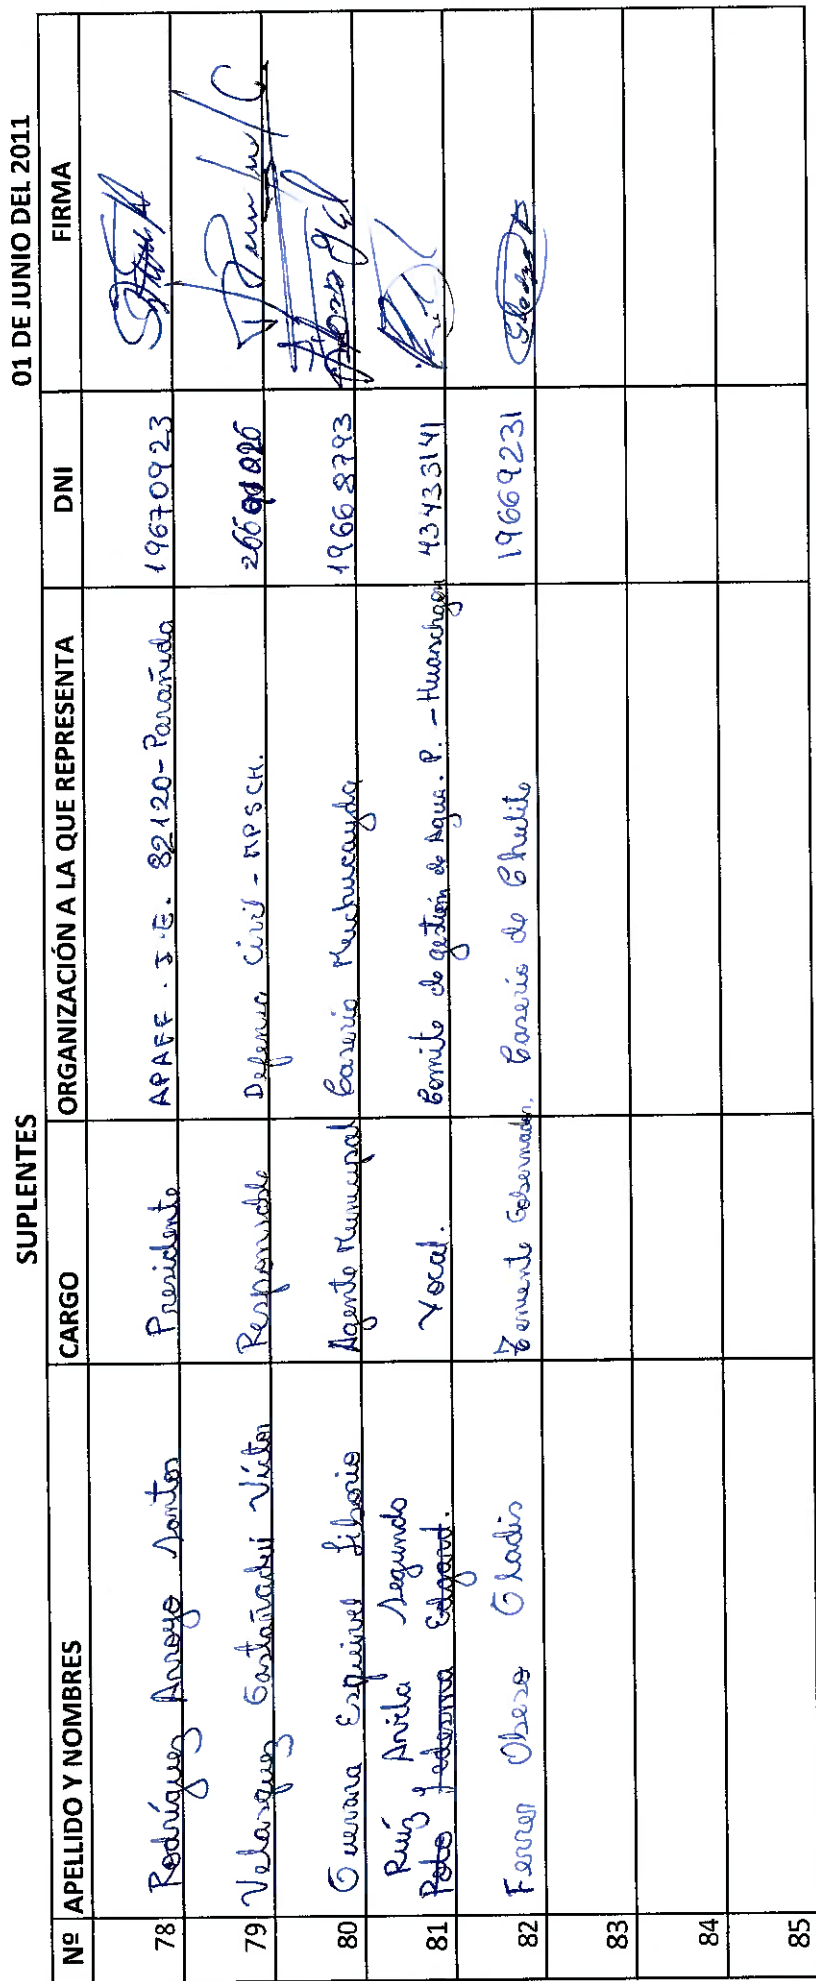 SUPLENTES 01 DE JUNIO DEL 2011
Nº APELLIDO Y NOMBRES CARGO ORGANIZACIÓN A LA QUE REPRESENTA DNI FIRMA
78 Rodríguez Arroyo Santos Presidente APAFF. I.E. 82120-Parañida 19670923
79 Velasquez Castañadui Víctor Responsable Defensa Civil - MPSCH.
80 Guevara Esquivel Liborio Agente Municipal Caserío Muchucayda 19668793
Ruíz Avila Segundo
81 Polo Ledesma Edgard. Vocal. Comite de gestión de Agua. P. - 43433141
82 Ferrer Obeso Gladis Teniente Gobernador. Caserío de Chulite 19669231
83
84
85